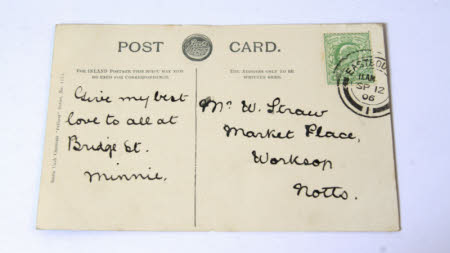 POST CARD.
FOR INLAND POSTAGE THIS SPACE MAY NOW
BE USED FOR CORRESPONDENCE.
THE ADDRESS ONLY TO BE
WRITTEN HERE.
Give my best
love to all at
Bridge St.
Minnie.
Mr W. Straw
Market Place,
Worksop
Notts.
EASTBOU
11 AM
SP 12
06
1